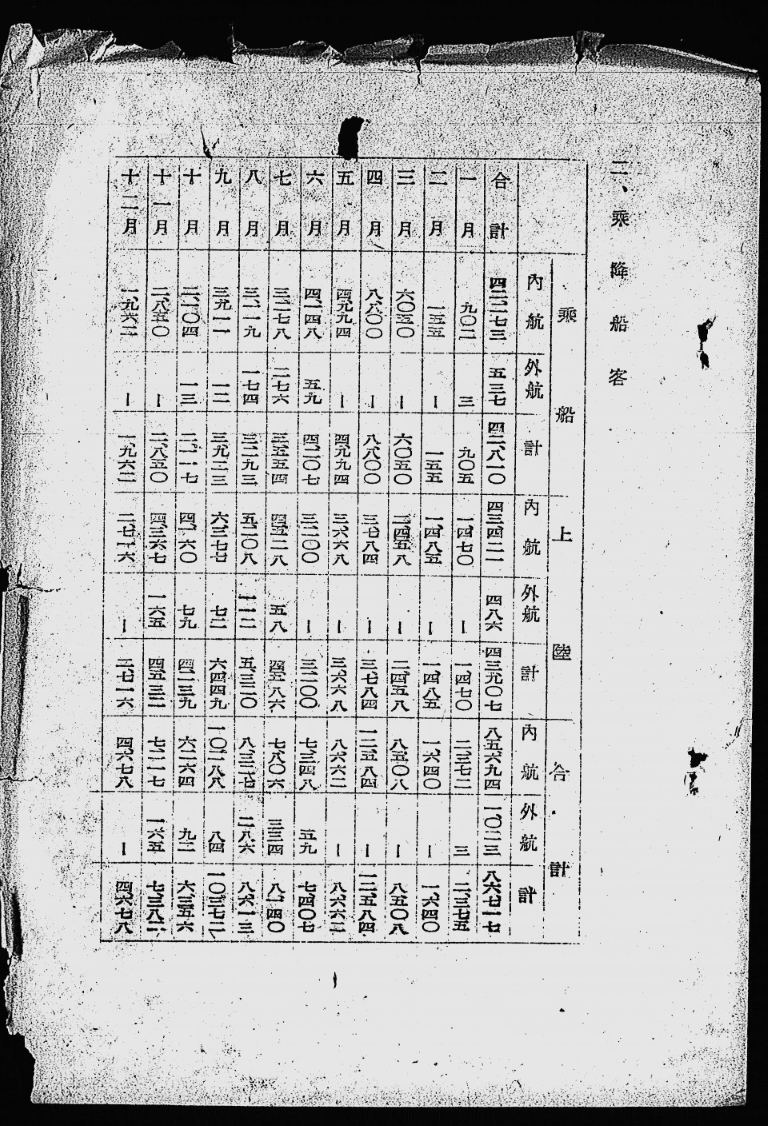 二、乘降船客
乘船 上陸 合計
內航 外航 計 內航 外航 計 內航 外航 計
合計 四二、二七三 五三七 四二、八一〇 四三、四二一 四八六 四三、九〇七 八五、六九四 一、〇二三 八六、七一七
一月 九〇二 三 九〇五 一、四七〇 ー 一、四七〇 二、三七二 三 二、三七五
二月 一五五 ー 一五五 一、四八五 ー 一、四八五 一、六四〇 ー 一、六四〇
三月 六、〇五〇 ー 六、〇五〇 二、四五八 ー 二、四五八 八、五〇八 ー 八、五〇八
四月 八、八〇〇 ー 八、八〇〇 三、七八四 ー 三、七八四 一二、五八四 ー 一二、五八四
五月 四、九九四 ー 四、九九四 三、六六八 ー 三、六六八 八、六六二 ー 八、六六二
六月 四、一四八 五九 四、二〇七 三、二〇〇 ー 三、二〇〇 七、三四八 五九 七、四〇七
七月 三、二七八 二七六 三、五五四 四、五二八 五八 四、五八六 七、八〇六 三三四 八、一四〇
八月 三、一一九 一七四 三、二九三 五、二〇八 一一二 五、三二〇 八、三二七 二八六 八、六一三
九月 三、九一一 一二 三、九二三 六、三七七 七二 六、四四九 一〇、二八八 八四 一〇、三七二
十月 二、一〇四 一三 二、一一七 四、一六〇 七九 四、二三九 六、二六四 九二 六、三五六
十一月 二、八五〇 ー 二、八五〇 四、三六七 一六五 四、五三二 七、二一七 一六五 七、三八二
十二月 一、九六二 ー 一、九六二 二、七一六 ー 二、七一六 四、六七八 ー 四、六七八